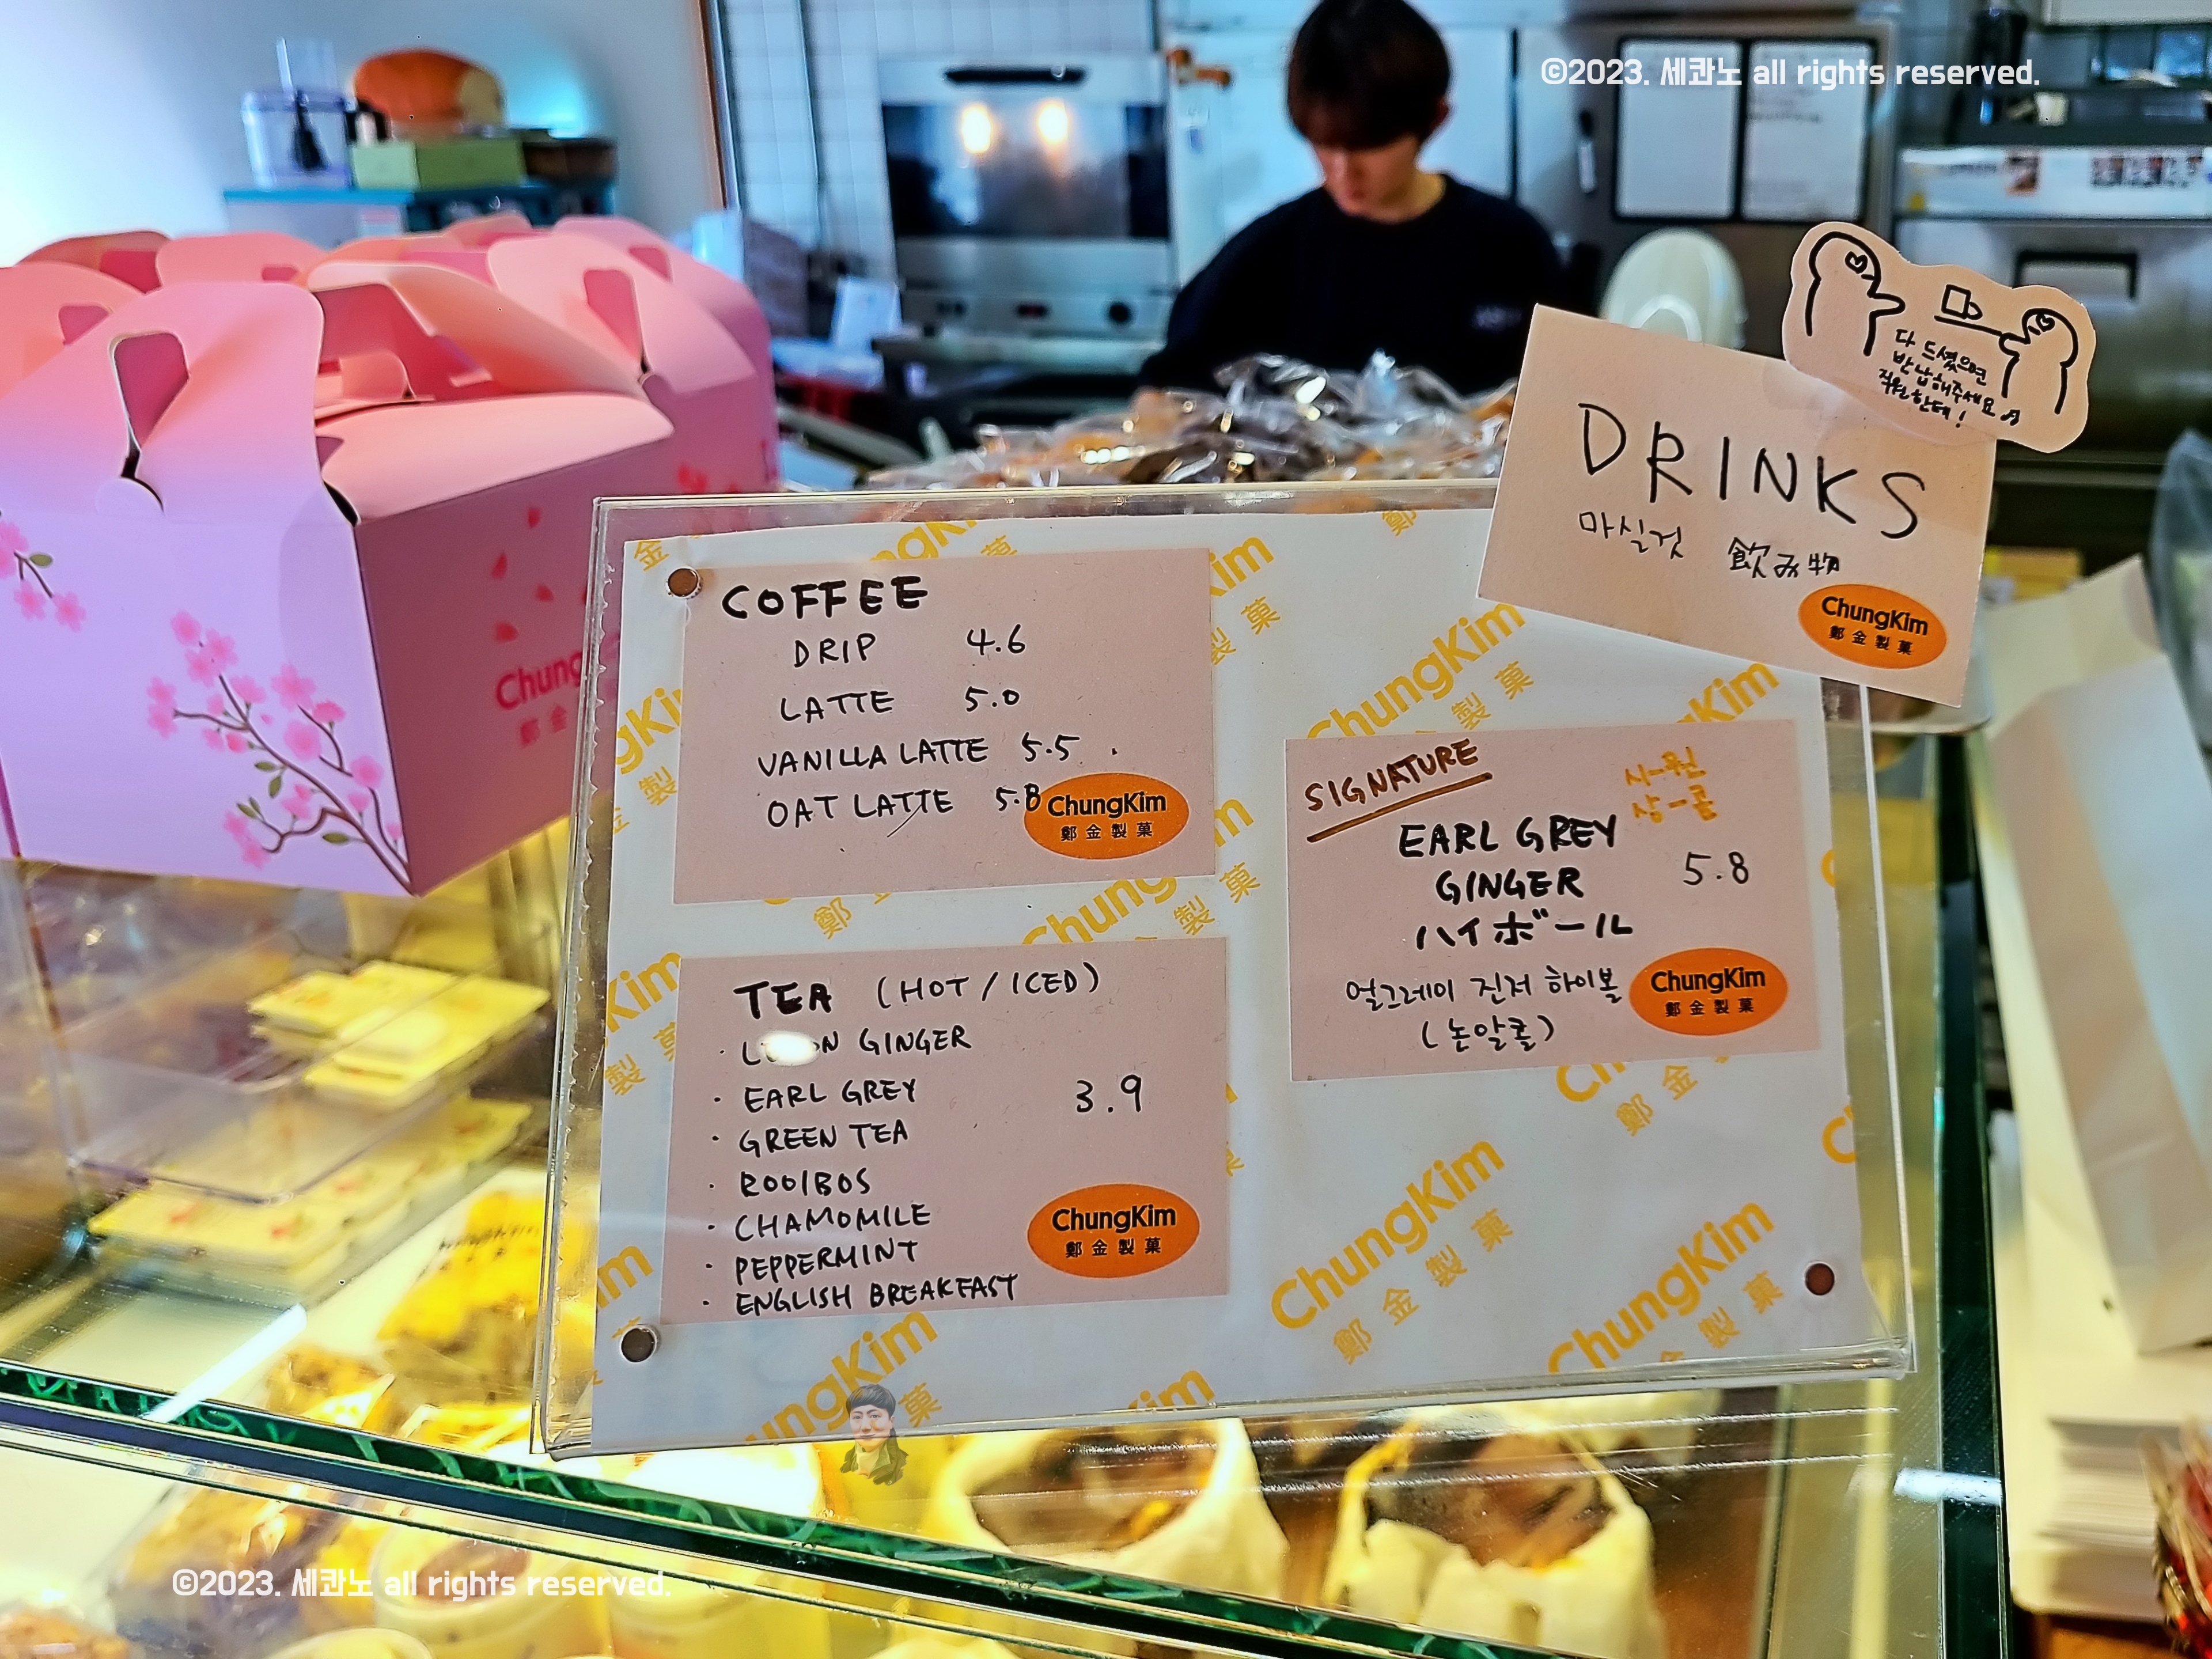 ©2023. 세콴노 all rights reserved.
다 드셨으면
반납해주세요♫
직원한테!
DRINKS
마실것 飲み物
ChungKim
鄭金製菓
COFFEE
DRIP 4.6
LATTE 5.0
VANILLA LATTE 5.5
OAT LATTE 5.8
ChungKim
鄭金製菓
TEA (HOT / ICED)
· GINGER
· EARL GREY 3.9
· GREEN TEA
· ROOIBOS
· CHAMOMILE
· PEPPERMINT
· ENGLISH BREAKFAST
ChungKim
鄭金製菓
SIGNATURE
시-원
상-콤
EARL GREY
GINGER 5.8
ハイボール
얼그레이 진저 하이볼
(논알콜)
ChungKim
鄭金製菓
ChungKim
鄭金製菓
ChungKim
製菓
©2023. 세콴노 all rights reserved.